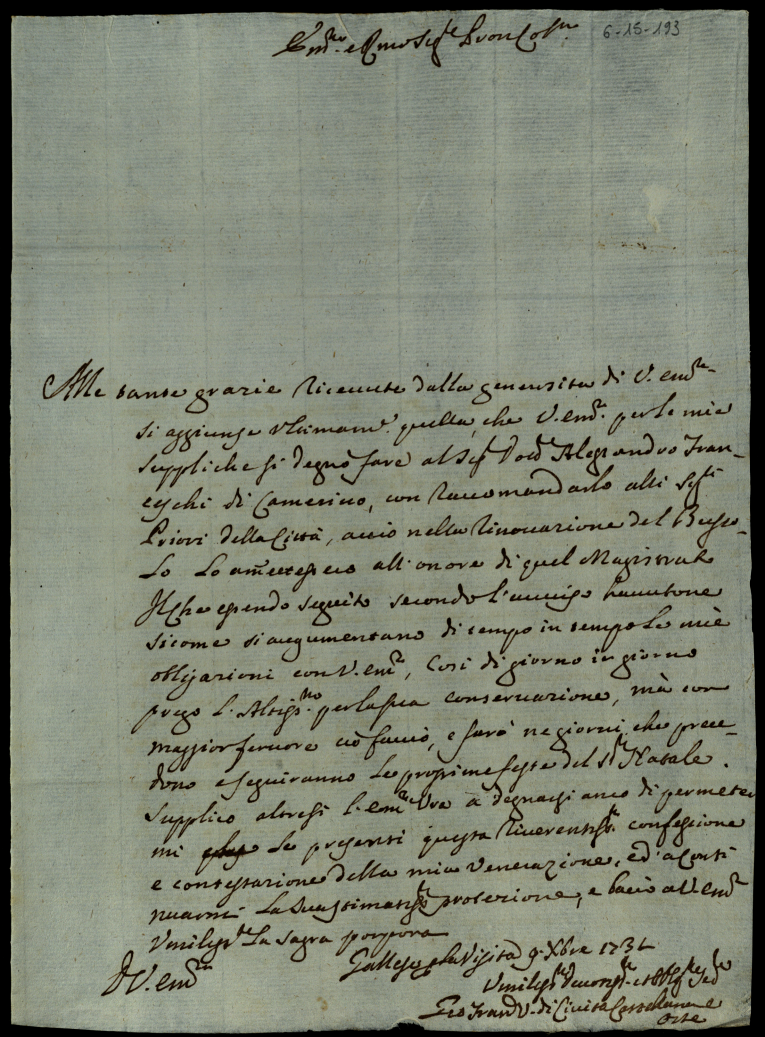 Em.mo e Rmo Sig.re Pron Col.mo
6-15-193
Alle tante grazie riceuute dalla generosita di V. em.za
si aggiunge vltimam.te quella, che V. em.za per le mie
suppliche si degnò fare al Sig.r Dott.r Alessandro Fran-
ceschi di Camerino, con raccomandarlo alli Sig.ri
Priori della Città, acciò nella rinouazione del Busso-
lo lo ammettessero all'onore di quel Magistrato
Il che essendo seguito secondo l'auuiso hauutone
sicome si augumentano di tempo in tempo le mie
obligazioni con V. em.za, Così di giorno in giorno
prego l'Altiss.mo per la sua conseruazione, mà con
maggior feruore ciò faccio, e farò ne giorni, che prece-
dono e seguiranno le prossime feste del S.to Natale.
Supplico altresi l'em.za Vra à degnarsi anco di permeter
mi le presenti questa riuerentiss.a confessione
e contestazione della mia venerazione, ed' a Conti
nuarmi la Sua stimatiss.a protezione, e bacio a V. em.za
Vmiliss.te La Sagra porpora
Gallese p la Visita 9 Xbre 1731
D V. em.za
Vmiliss.o Deuotiss.o et Obblig.mo Se.re
Gio Fran.co V. di Ciuita Castellana e
Orte